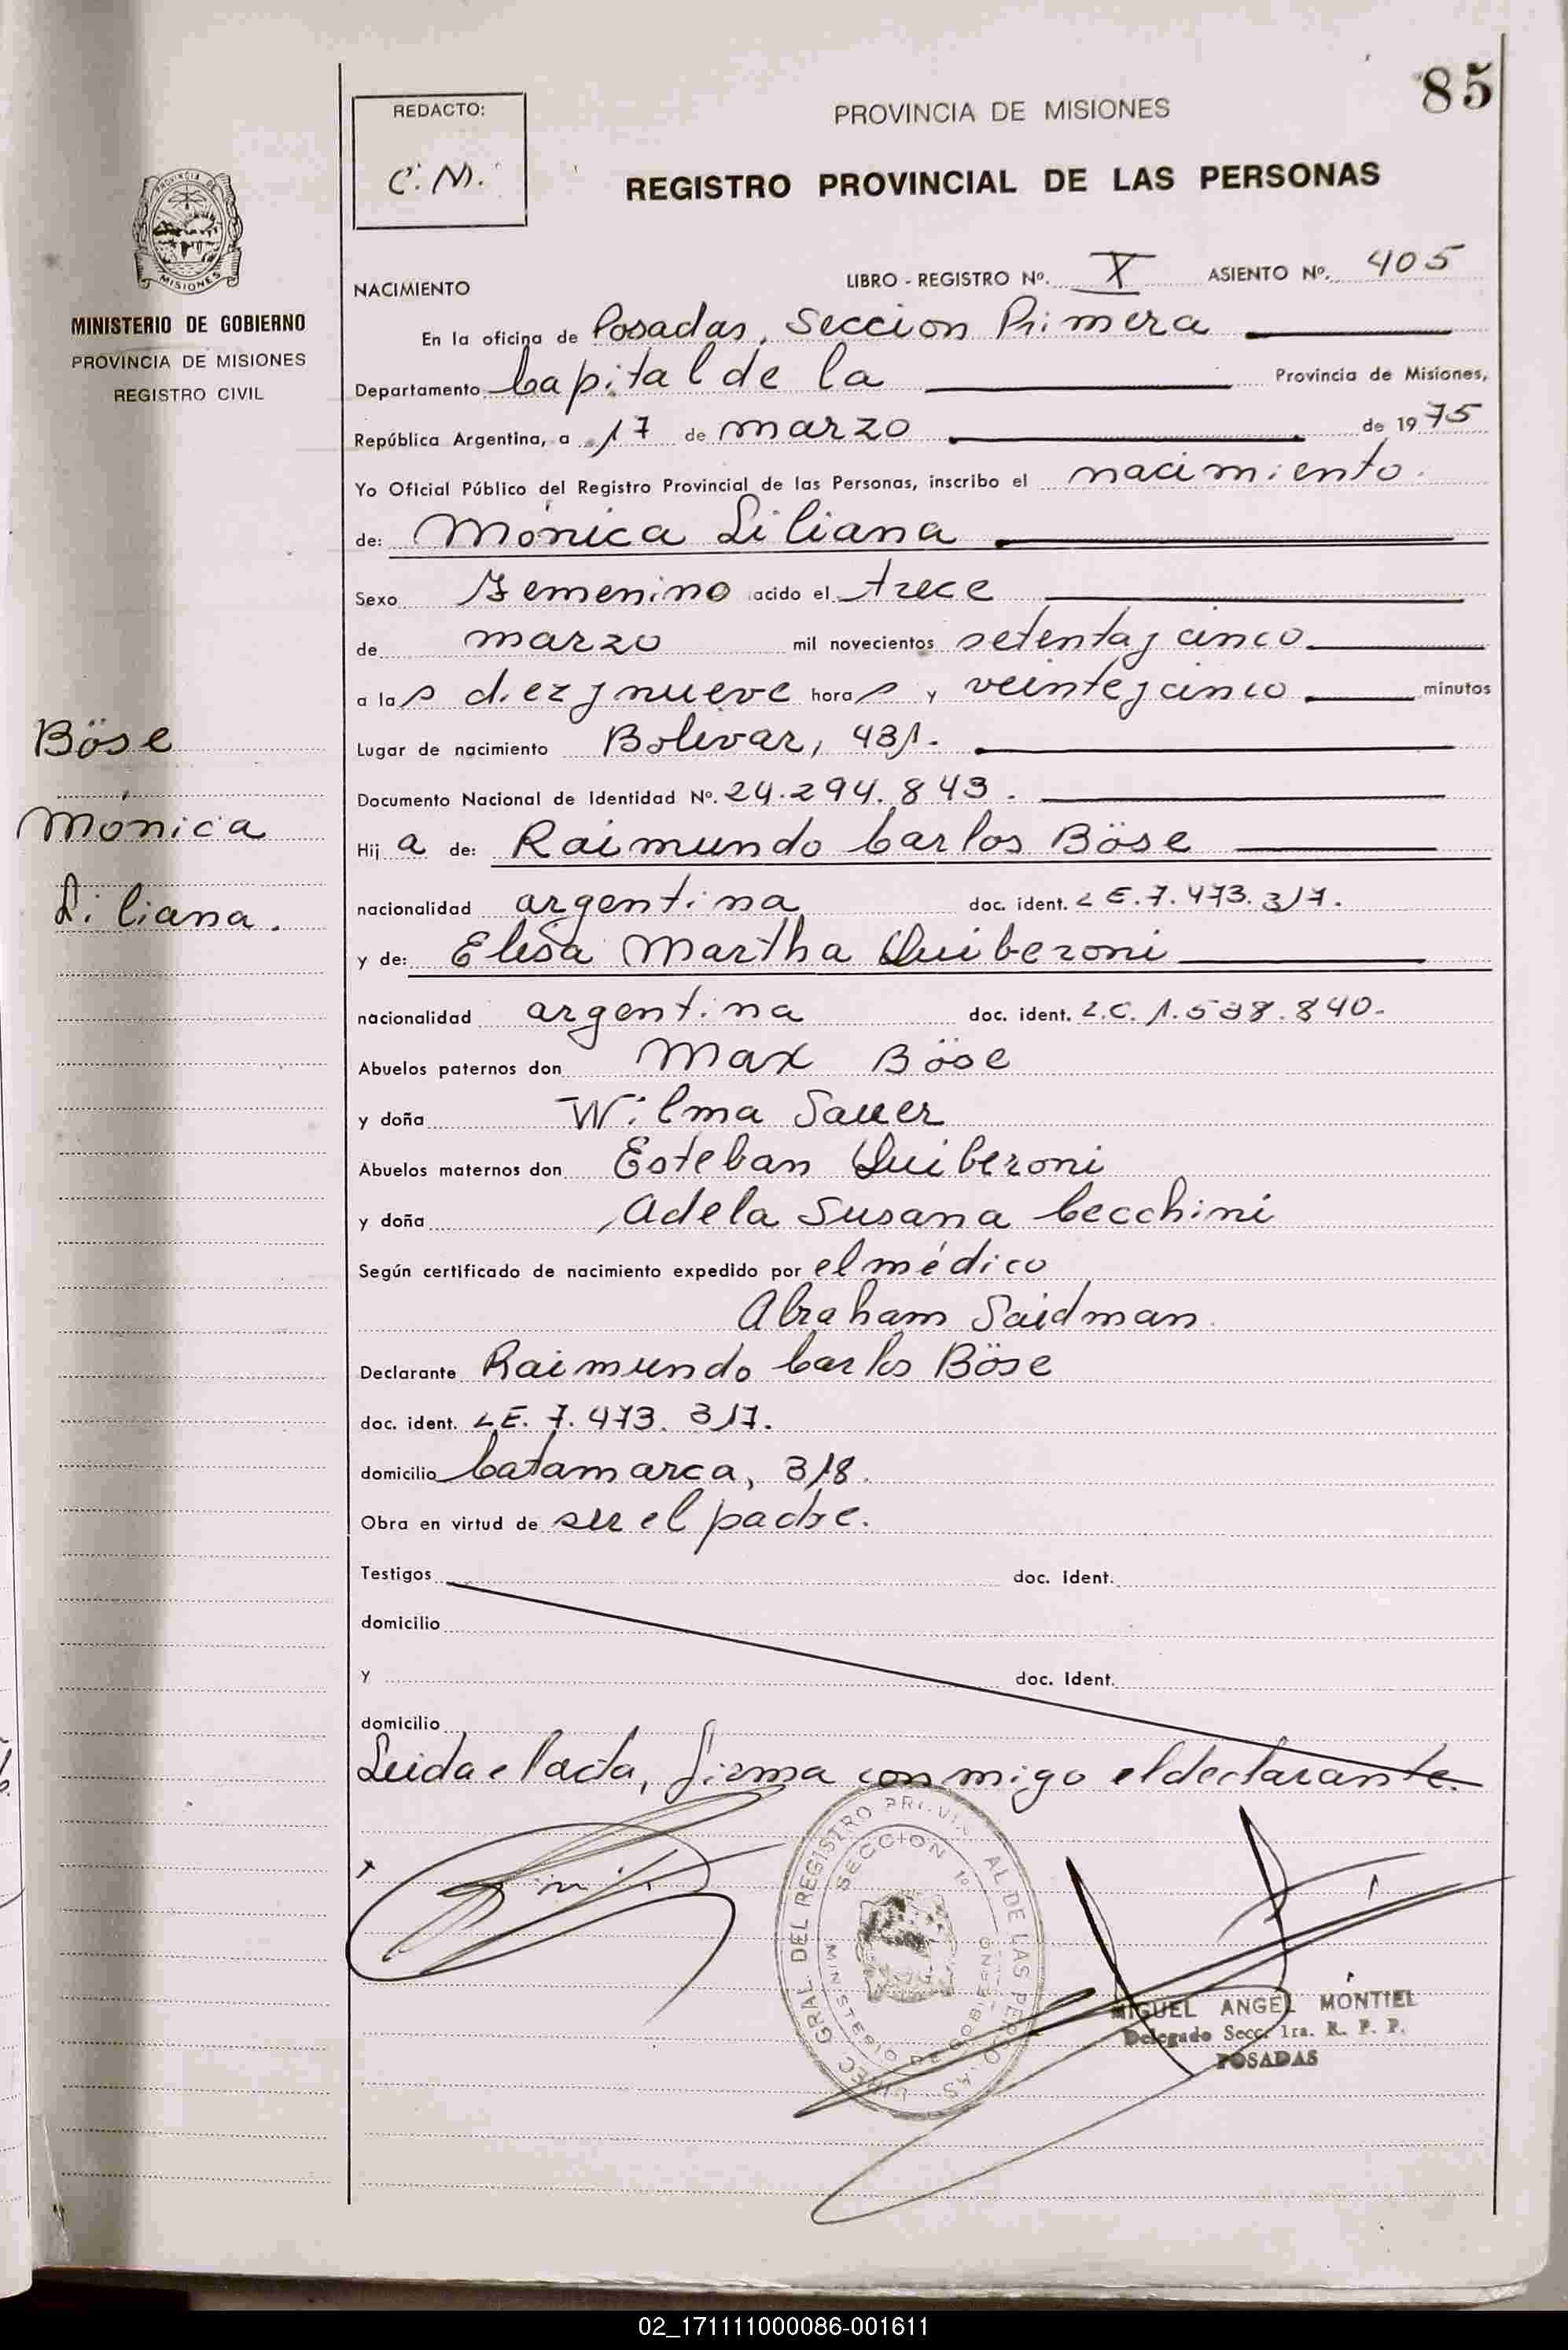 85
REDACTO:
C. M.
PROVINCIA DE MISIONES
REGISTRO PROVINCIAL DE LAS PERSONAS
PROVINCIA DE
MISIONES
MINISTERIO DE GOBIERNO
PROVINCIA DE MISIONES
REGISTRO CIVIL
NACIMIENTO LIBRO - REGISTRO Nº. X ASIENTO Nº. 405
En la oficina de Posadas, Seccion Primera
Departamento Capital de la Provincia de Misiones,
República Argentina, a 17 de marzo de 1975
Yo Oficial Público del Registro Provincial de las Personas, inscribo el nacimiento.
de: Mónica Liliana
Sexo Femenino acido el trece
de marzo mil novecientos setenta y cinco
a las diez y nueve horas y veinte y cinco minutos
Lugar de nacimiento Bolivar, 431.
Documento Nacional de Identidad Nº. 24.294.843.
Hija de: Raimundo Carlos Böse
nacionalidad argentina doc. ident. LE. 7.473.317.
y de: Elisa Martha Quiberoni
nacionalidad argentina doc. ident. L.C. 1.538.840.
Abuelos paternos don Max Böse
y doña Wilma Sauer
Abuelos maternos don Esteban Quiberoni
y doña Adela Susana Cecchini
Según certificado de nacimiento expedido por el médico
Abraham Saidman.
Declarante Raimundo Carlos Böse
doc. ident. LE. 7.473.317.
domicilio Catamarca, 318.
Obra en virtud de ser el padre.
Testigos doc. ident.
domicilio
y doc. ident.
domicilio
Leida el acta, firma conmigo el declarante.
Böse
Mónica
Liliana.
SECCION 1º
MINISTERIO DE GOBIERNO
MIGUEL ANGEL MONTIEL
Delegado Secc. 1ra. R. P. P.
POSADAS
02_171111000086-001611